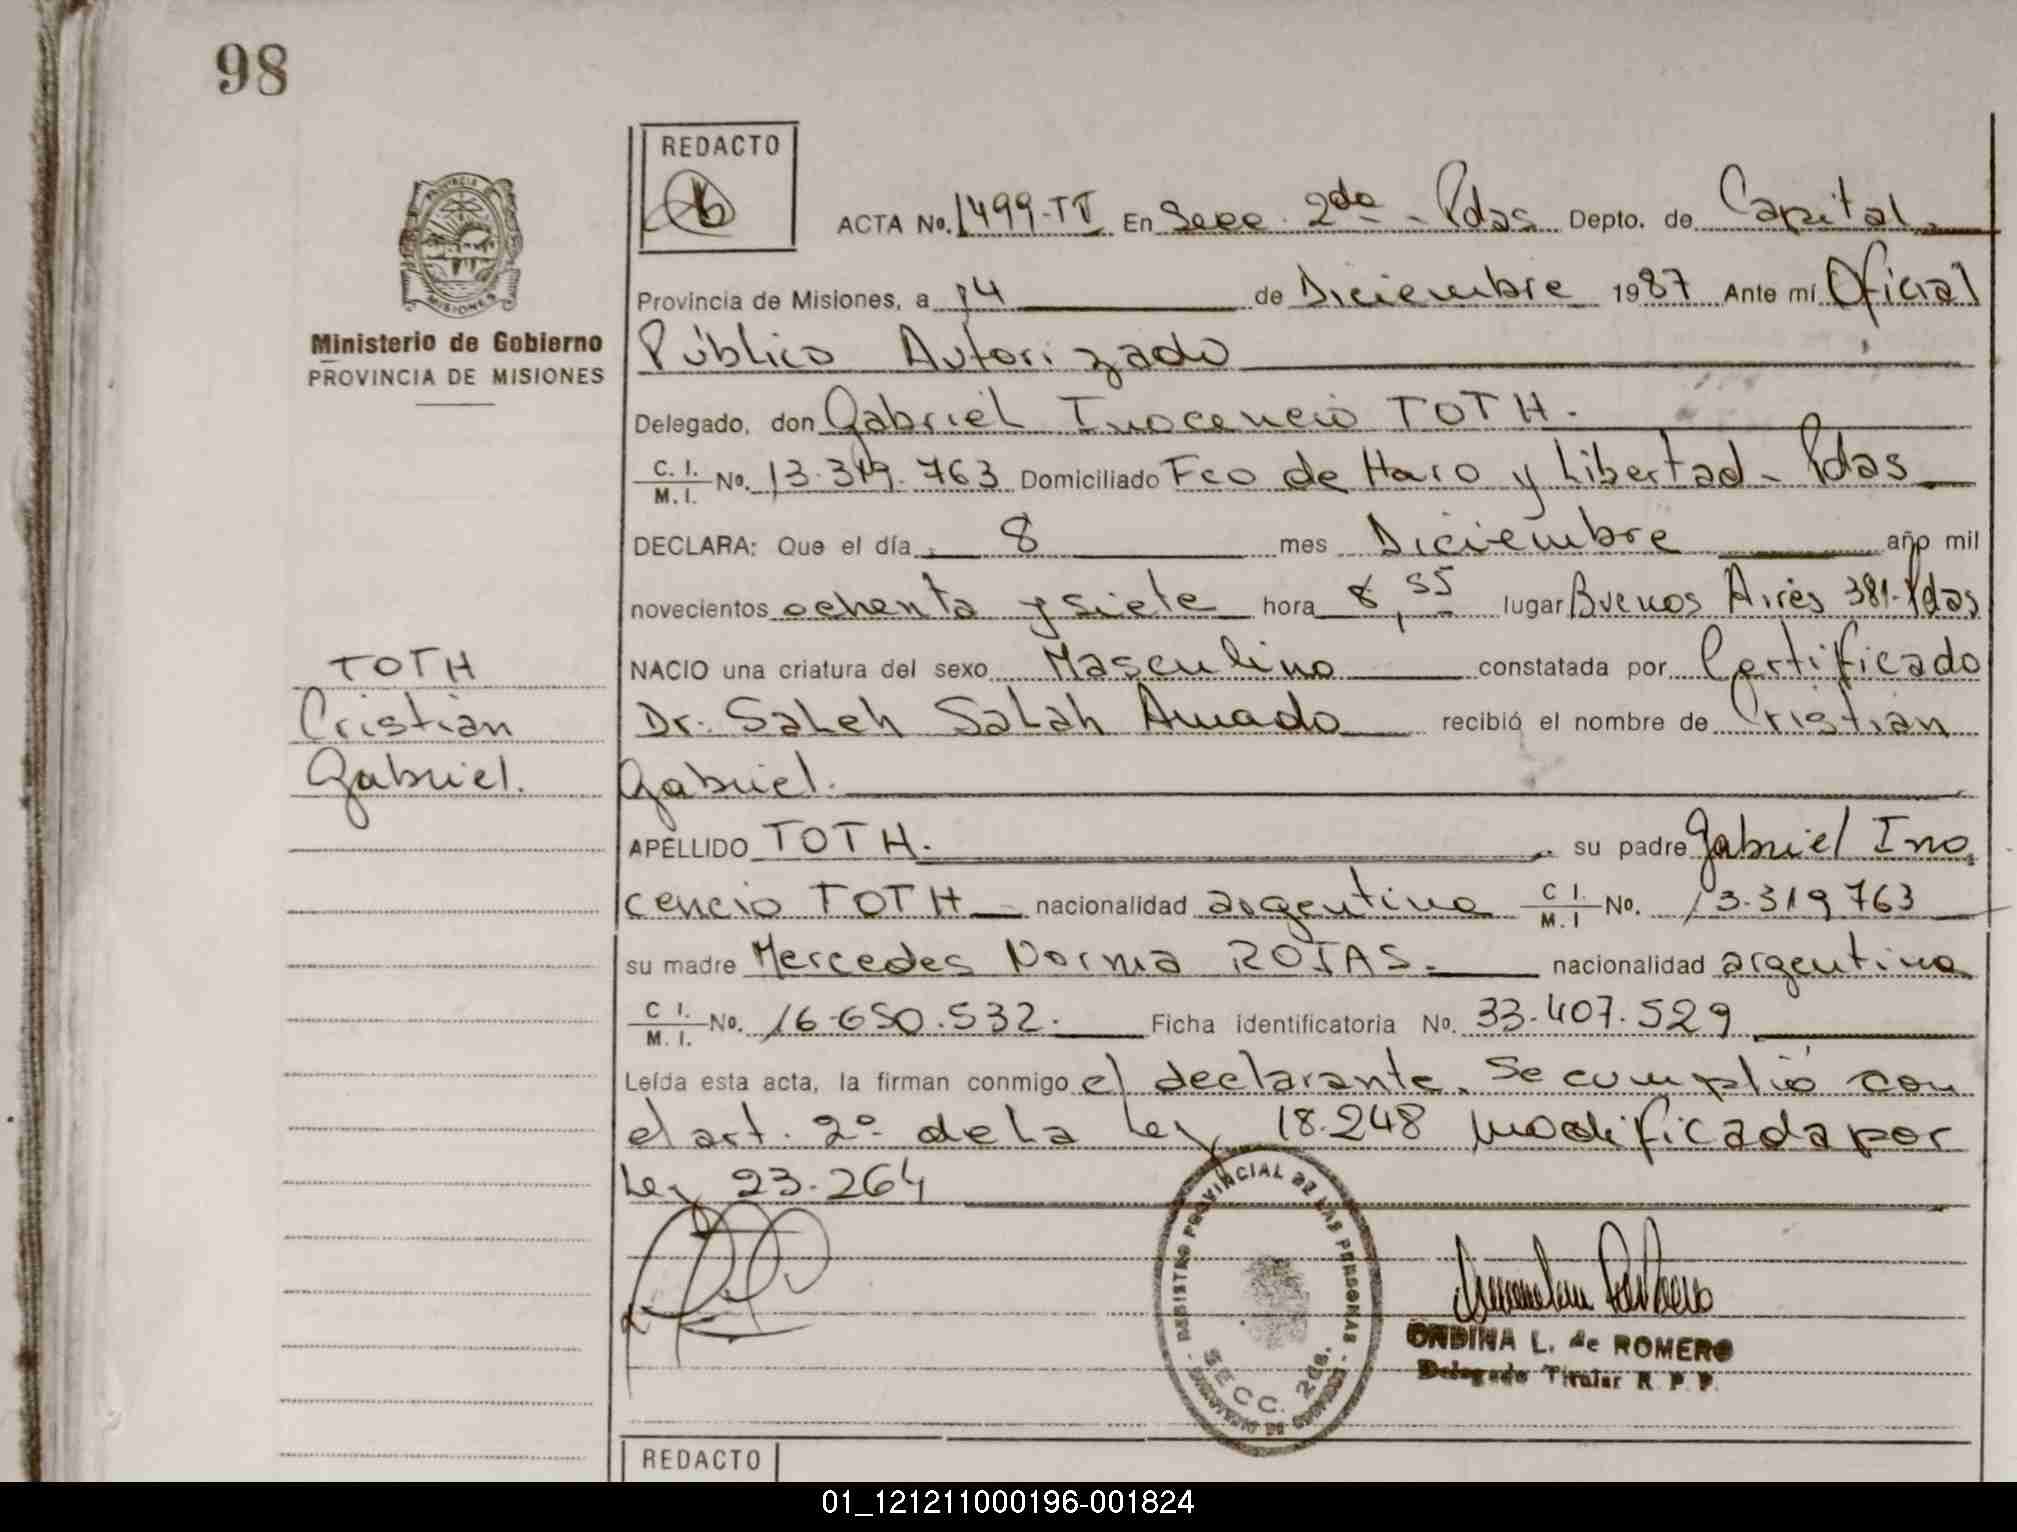 98
REDACTO
ACTA No. 1499-TI En Secc. 2da - Pdas Depto. de Capital
Provincia de Misiones, a 14 de Diciembre 1987 Ante mí Oficial
Público Autorizado
PROVINCIA DE MISIONES
Ministerio de Gobierno
PROVINCIA DE MISIONES
Delegado, don Gabriel Inocencio TOTH.
C. I. M. I. No. 13.319.763 Domiciliado Fco de Haro y Libertad - Pdas
DECLARA: Que el día 8 mes Diciembre año mil
novecientos ochenta y siete hora 8,55 lugar Buenos Aires 381-Pdas
NACIO una criatura del sexo Masculino constatada por Certificado
Dr. Saleh Salah Amado recibió el nombre de Cristian
Gabriel.
TOTH
Cristian
Gabriel.
APELLIDO TOTH. su padre Gabriel Ino
cencio TOTH nacionalidad argentina C I. M. I No. 13.319763
su madre Mercedes Norma ROJAS. nacionalidad argentina
C I. M. I. No. 16.650.532. Ficha identificatoria No. 33.407.529
Leída esta acta, la firman conmigo el declarante. Se cumplió con
el art. 2º de la Ley 18.248 modificada por
Ley 23.264
REGISTRO PROVINCIAL DE LAS PERSONAS
SECC. 2da.
ONDINA L. de ROMERO
Delegado Titular R. P. P.
REDACTO
01_121211000196-001824